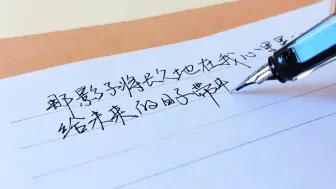 那影子将长久地在我心里
给未来的日子带